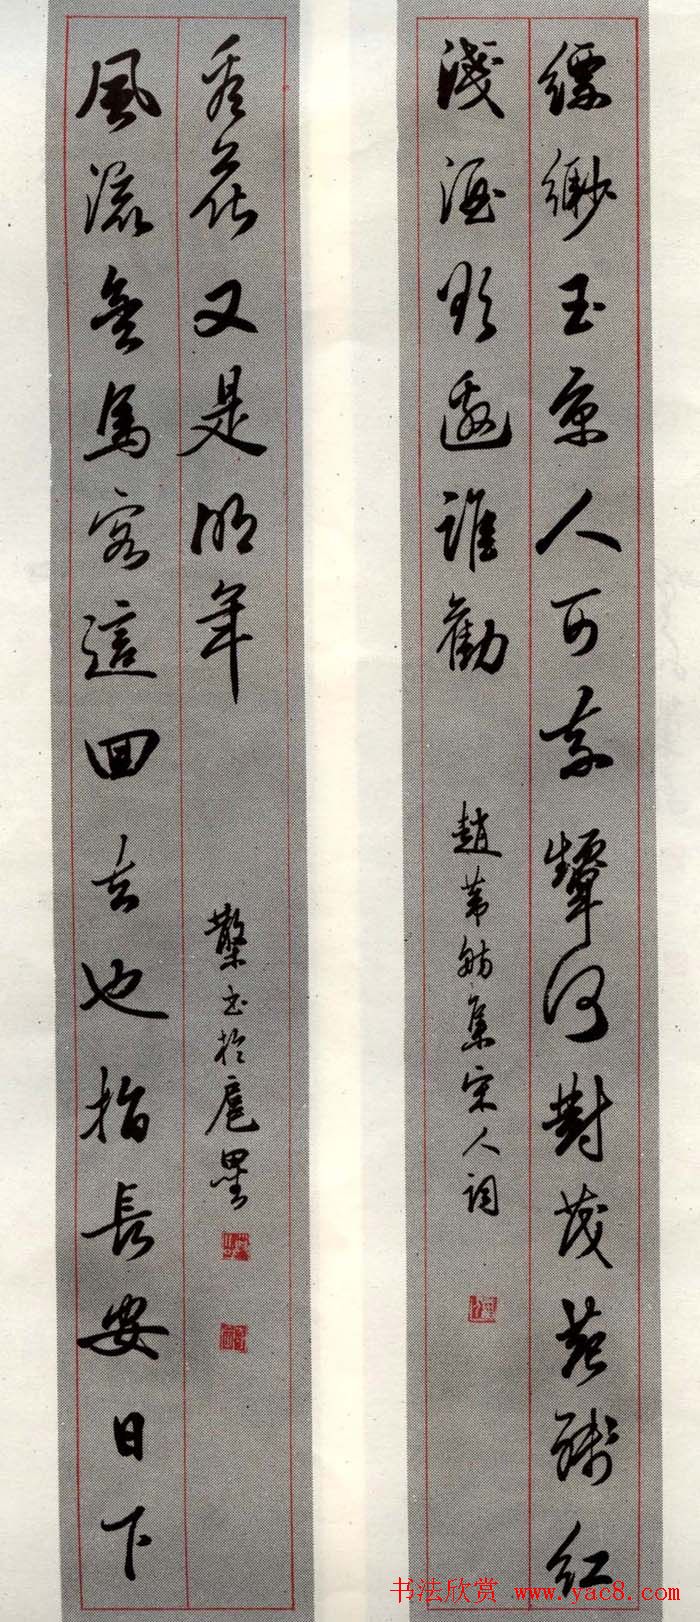 縹緲玉京人可奈顰何對茂苑殘紅
淺酒欲邀誰勸
趙芾舫集宋人詞
風流金馬客這回去也指長安日下
看花又是明年
書於扈壘
书法欣赏 www.yac8.com